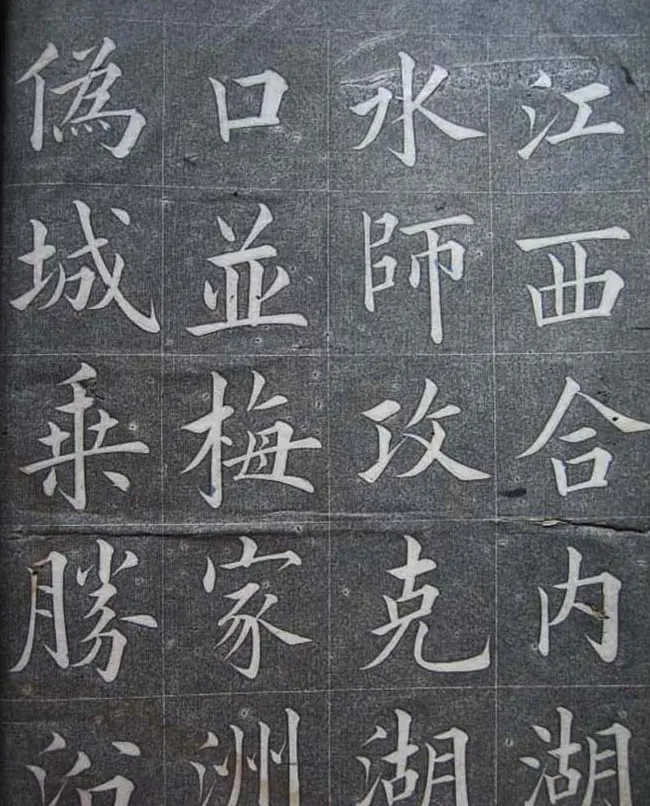 江西合内湖
水師攻克湖
口並梅家洲
偽城乗勝沿